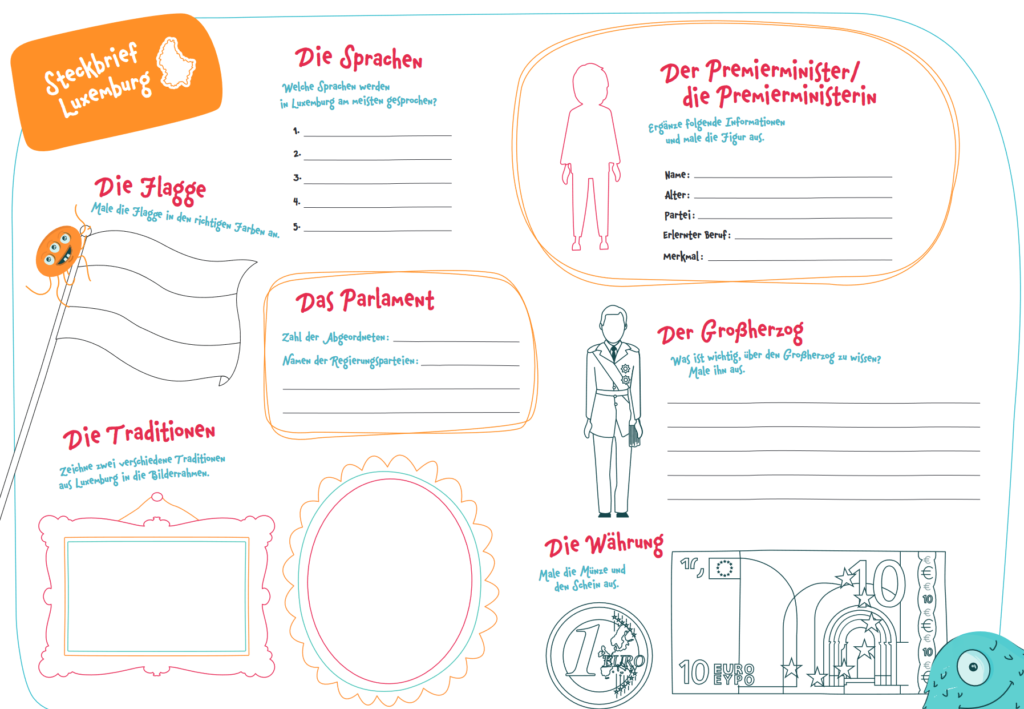 Steckbrief
Luxemburg
Die Sprachen
Welche Sprachen werden
in Luxemburg am meisten gesprochen?
1.
2.
3.
4.
5.
Der Premierminister/
die Premierministerin
Ergänze folgende Informationen
und male die Figur aus.
Name:
Alter:
Partei:
Erlernter Beruf:
Merkmal:
Die Flagge
Male die Flagge in den richtigen Farben an.
Das Parlament
Zahl der Abgeordneten:
Namen der Regierungsparteien:
Der Großherzog
Was ist wichtig, über den Großherzog zu wissen?
Male ihn aus.
Die Traditionen
Zeichne zwei verschiedene Traditionen
aus Luxemburg in die Bilderrahmen.
Die Währung
Male die Münze und
den Schein aus.
1 EURO
10
€
€
10
€
€
10
€
10 EURO
ΕΥΡΩ